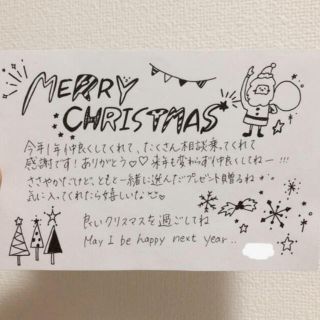 MERRY
CHRISTMAS
今年1年仲良くしてくれて、たくさん相談乗ってくれて
感謝です！ありがとう♡♡来年も変わらず仲良くしてねー!!!
ささやかだけど、ともと一緒に選んだプレゼント贈るね
気に入ってくれたら嬉しいな
良いクリスマスを過ごしてね
May I be happy next year..